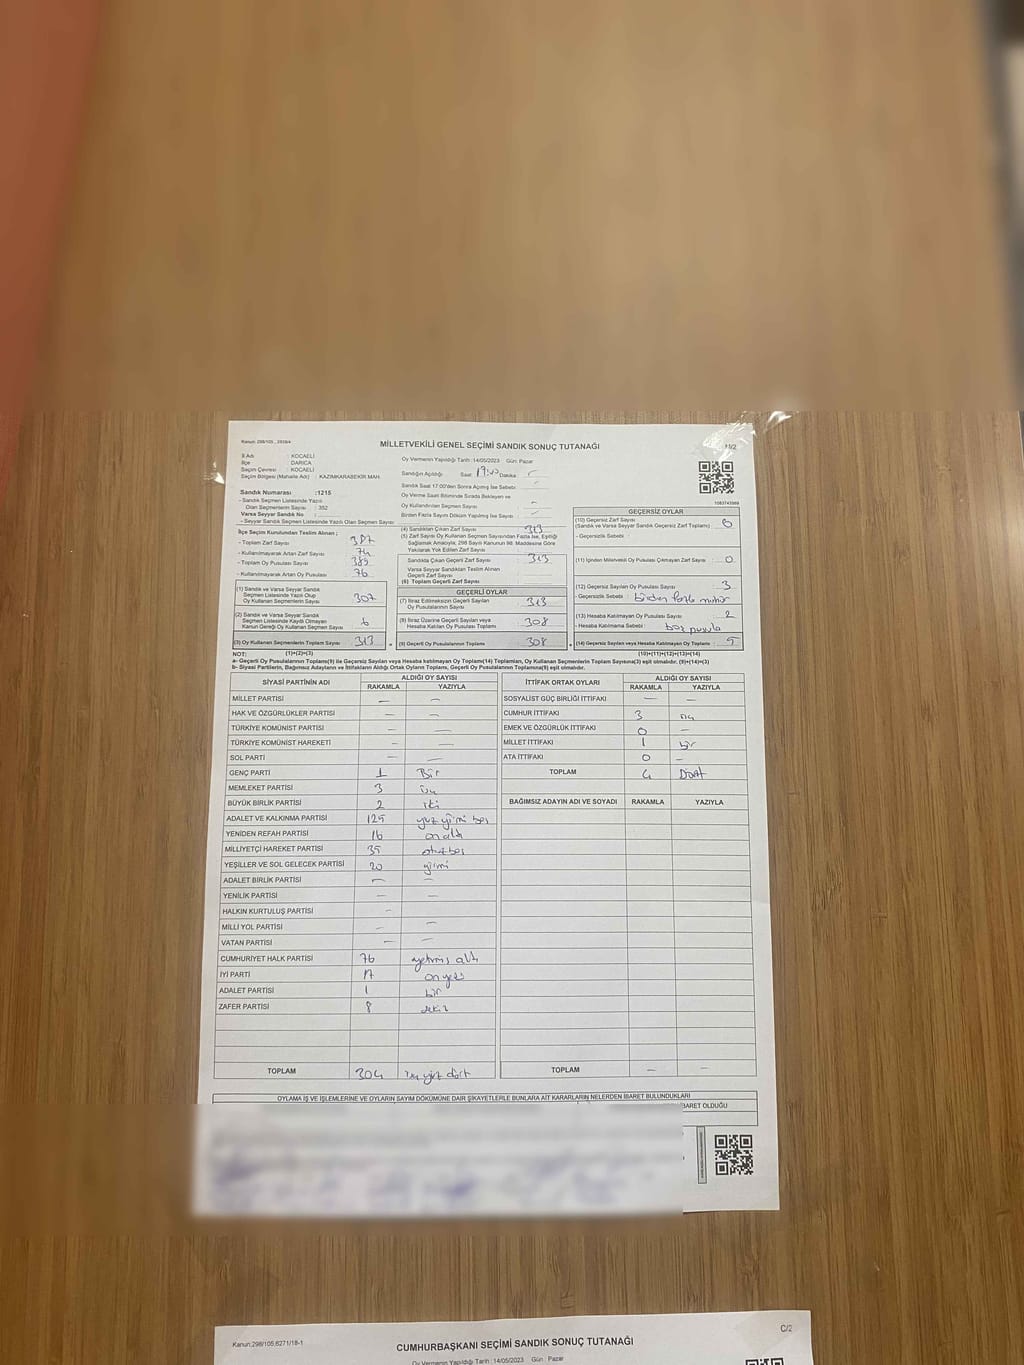 Kanun: 298/105
MİLLETVEKİLİ GENEL SEÇİMİ SANDIK SONUÇ TUTANAĞI
İl Adı : KOCAELİ
İlçe : DARICA
Seçim Çevresi : KOCAELİ
Seçim Bölgesi (Mahalle Adı) : KAZIMKARABEKİR MAH.
Sandık Numarası :1215
- Sandık Seçmen Listesinde Yazılı
Olan Seçmenlerin Sayısı : 352
Varsa Seyyar Sandık No :
- Seyyar Sandık Seçmen Listesinde Yazılı Olan Seçmen Sayısı
Oy Vermenin Yapıldığı Tarih :14/05/2023 Gün: Pazar
Sandığın Açıldığı Saat: Dakika
Sandık Saat 17:00'den Sonra Açılmış İse Sebebi
Oy Verme Saati Bitiminde Sırada Bekleyen ve
Oy Kullandırılan Seçmen Sayısı -
Birden Fazla Sayım Döküm Yapılmış İse Sayısı
İlçe Seçim Kurulundan Teslim Alınan ;
- Toplam Zarf Sayısı 387
- Kullanılmayarak Artan Zarf Sayısı 74
- Toplam Oy Pusulası Sayısı
- Kullanılmayarak Artan Oy Pusulası 76
(1) Sandık ve Varsa Seyyar Sandık
Seçmen Listesinde Yazılı Olup
Oy Kullanan Seçmenlerin Sayısı 307
(2) Sandık ve Varsa Seyyar Sandık
Seçmen Listesinde Kaydı Olmayan
Kanun Gereği Oy Kullanan Seçmen Sayısı 6
(3) Oy Kullanan Seçmenlerin Toplam Sayısı 313
(4) Sandıktan Çıkan Zarf Sayısı 313
(5) Zarf Sayısı Oy Kullanan Seçmen Sayısından Fazla İse, Eşitliği
Sağlamak Amacıyla, 298 Sayılı Kanunun 98. Maddesine Göre
Yakılarak Yok Edilen Zarf Sayısı
Sandıkta Çıkan Geçerli Zarf Sayısı 313
Varsa Seyyar Sandıktan Teslim Alınan
Geçerli Zarf Sayısı
(6) Toplam Geçerli Zarf Sayısı
GEÇERLİ OYLAR
(7) İtiraz Edilmeksizin Geçerli Sayılan
Oy Pusulalarının Sayısı 313
(8) İtiraz Üzerine Geçerli Sayılan veya
Hesaba Katılan Oy Pusulası Toplamı 308
(9) Geçerli Oy Pusulalarının Toplamı 308
GEÇERSİZ OYLAR
(10) Geçersiz Zarf Sayısı
(Sandık ve Varsa Seyyar Sandık Geçersiz Zarf Toplamı)
- Geçersizlik Sebebi :
(11) İçinden Milletvekili Oy Pusulası Çıkmayan Zarf Sayısı : 0
(12) Geçersiz Sayılan Oy Pusulası Sayısı : 3
- Geçersizlik Sebebi : birden fazla mühür
(13) Hesaba Katılmayan Oy Pusulası Sayısı : 2
- Hesaba Katılmama Sebebi : boş pusula
(14) Geçersiz Sayılan veya Hesaba Katılmayan Oy Toplamı : 5
NOT: (1)+(2)=(3) (10)+(11)+(12)+(13)=(14)
a- Geçerli Oy Pusulalarının Toplamı(9) ile Geçersiz Sayılan veya Hesaba katılmayan Oy Toplamı(14) Toplamları, Oy Kullanan Seçmenlerin Toplam Sayısına(3) eşit olmalıdır. (9)+(14)=(3)
b- Siyasi Partilerin, Bağımsız Adayların ve İttifakların Aldığı Ortak Oyların Toplamı, Geçerli Oy Pusulalarının Toplamına(9) eşit olmalıdır.
SİYASİ PARTİNİN ADI ALDIĞI OY SAYISI
RAKAMLA YAZIYLA
MİLLET PARTİSI — —
HAK VE ÖZGÜRLÜKLER PARTİSİ — —
TÜRKİYE KOMÜNİST PARTİSİ — —
TÜRKİYE KOMÜNİST HAREKETİ — —
SOL PARTİ — —
GENÇ PARTİ 1 Bir
MEMLEKET PARTİSİ 3 Üç
BÜYÜK BİRLİK PARTİSİ 2 iki
ADALET VE KALKINMA PARTİSİ 125 yüz yirmi beş
YENİDEN REFAH PARTİSİ 16 on altı
MİLLİYETÇİ HAREKET PARTİSİ 35 otuzbeş
YEŞİLLER VE SOL GELECEK PARTİSİ 20 yirmi
ADALET BİRLİK PARTİSİ — —
YENİLİK PARTİSİ — —
HALKIN KURTULUŞ PARTİSİ —
MİLLİ YOL PARTİSİ — —
VATAN PARTİSİ — —
CUMHURİYET HALK PARTİSİ 76 yetmiş altı
İYİ PARTİ 17 on yedi
ADALET PARTİSİ 1 bir
ZAFER PARTİSİ 8 sekiz
TOPLAM 304 üç yüz dört
İTTİFAK ORTAK OYLARI ALDIĞI OY SAYISI
RAKAMLA YAZIYLA
SOSYALİST GÜÇ BİRLİĞİ İTTİFAKI — —
CUMHUR İTTİFAKI 3 üç
EMEK VE ÖZGÜRLÜK İTTİFAKI 0 —
MİLLET İTTİFAKI 1 bir
ATA İTTİFAKI 0 —
TOPLAM 4 Dört
BAĞIMSIZ ADAYIN ADI VE SOYADI RAKAMLA YAZIYLA
TOPLAM — —
OYLAMA İŞ VE İŞLEMLERİNE VE OYLARIN SAYIM DÖKÜMÜNE DAİR ŞİKAYETLERLE BUNLARA AİT KARARLARIN NELERDEN İBARET BULUNDUKLARI
İBARET OLDUĞU
Kanun:298/105,6271/18-1
C/2
CUMHURBAŞKANI SEÇİMİ SANDIK SONUÇ TUTANAĞI
Oy Vermenin Yapıldığı Tarih :14/05/2023 Gün : Pazar